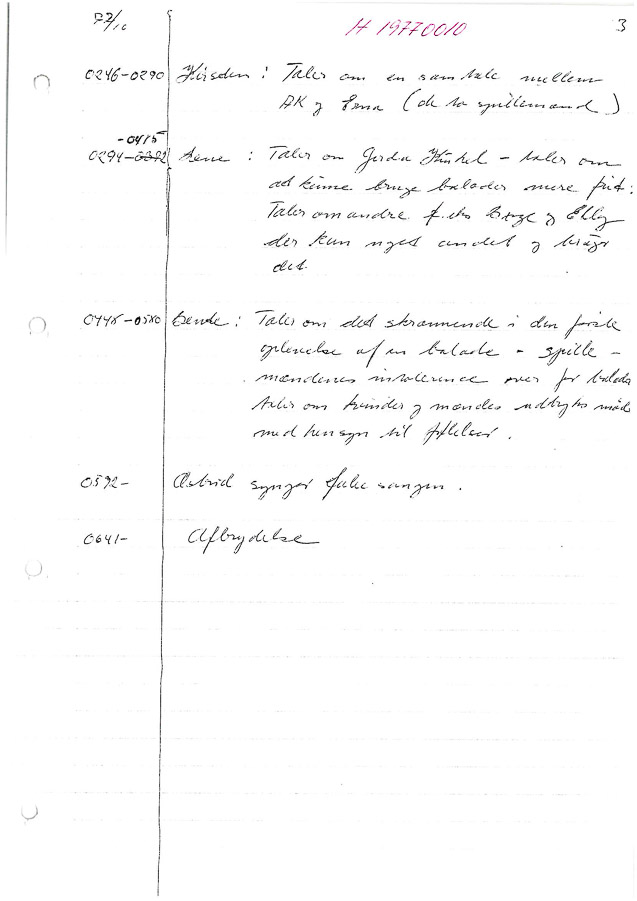 H 19770010
3
0246-0290 Kirsten: Taler om en samtale mellem
AK og Erna (de to spillemænd)
-0415
0294-0392 Lene: Taler om Gerda - taler om
at kunne bruge balader mere frit:
Taler om andre f.eks Børge og Elly
der kan noget andet og bruger
det.
0445-0580 Bente: Taler om det skræmmende i den første
oplevelse af en balade - spille-
mændenes intolerence over for balader
taler om kvinder og mændes udtryks måde
med hensyn til følelser.
0592- Astrid synger sangen.
0641- Afbrydelse